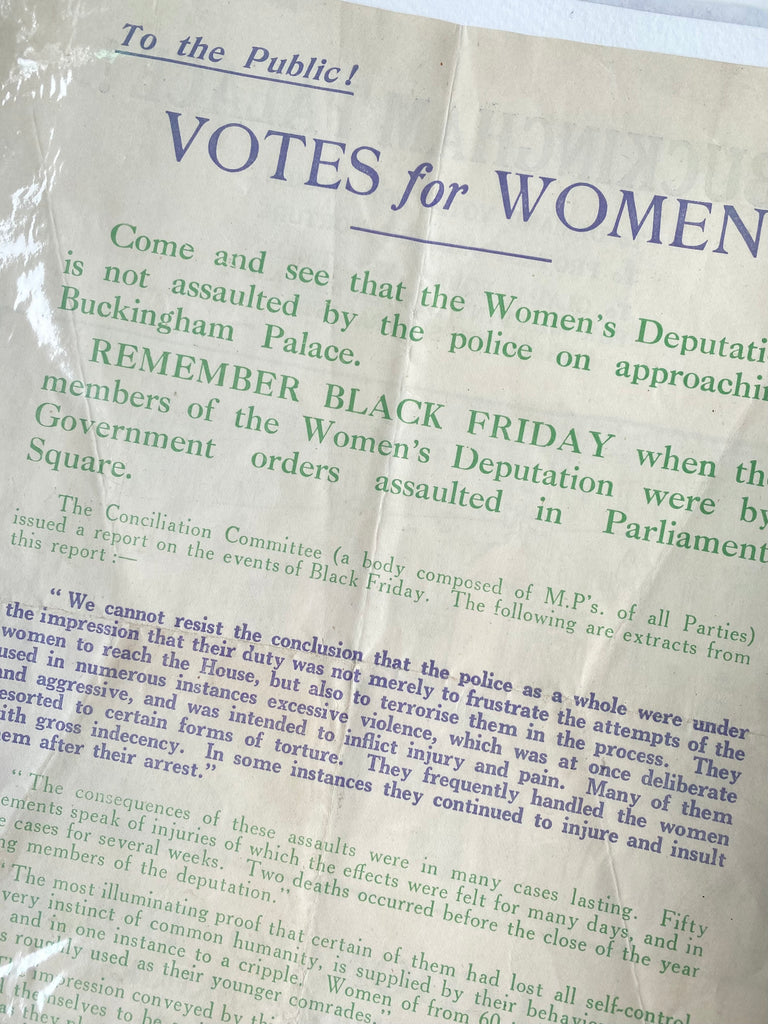 To the Public!
VOTES for WOMEN
Come and see that the Women's Deputati
is not assaulted by the police on approachin
Buckingham Palace.
REMEMBER BLACK FRIDAY when the
members of the Women's Deputation were by
Government orders assaulted in Parliament
Square.
The Conciliation Committee (a body composed of M.P's. of all Parties)
issued a report on the events of Black Friday. The following are extracts from
this report :—
" We cannot resist the conclusion that the police as a whole were under
the impression that their duty was not merely to frustrate the attempts of the
women to reach the House, but also to terrorise them in the process. They
used in numerous instances excessive violence, which was at once deliberate
and aggressive, and was intended to inflict injury and pain. Many of them
esorted to certain forms of torture. They frequently handled the women
ith gross indecency. In some instances they continued to injure and insult
em after their arrest."
" The consequences of these assaults were in many cases lasting. Fifty
ements speak of injuries of which the effects were felt for many days, and in
e cases for several weeks. Two deaths occurred before the close of the year
ng members of the deputation."
" The most illuminating proof that certain of them had lost all self-control
very instinct of common humanity, is supplied by their behaviou
and in one instance to a cripple. Women of from 60
s roughly used as their younger comrades."
impression conveyed by this
themselves to be
they